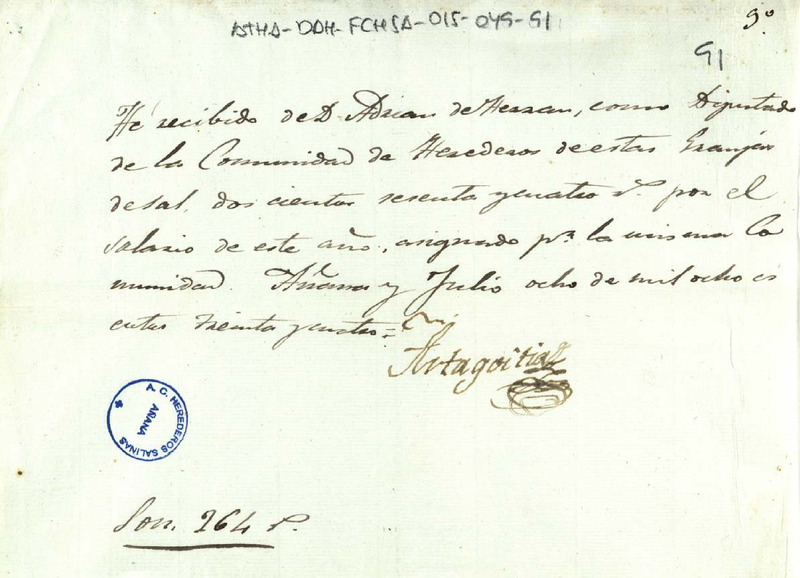 ATHA-DAH-FCHSA-015-049-91
9º
91
He recibido de D. Adrian de Herran, como Diputado
de la Comunidad de Herederos de estas Granjas
de sal, dos cientos sesenta y cuatro rs. por el
salario de este año, asignado pr. la misma Co
munidad. Añana y Julio ocho de mil ocho ci
entos treinta y cuatro=
Artagoitia
A. C. HEREDEROS SALINAS
AÑANA
Son. 264 rs.